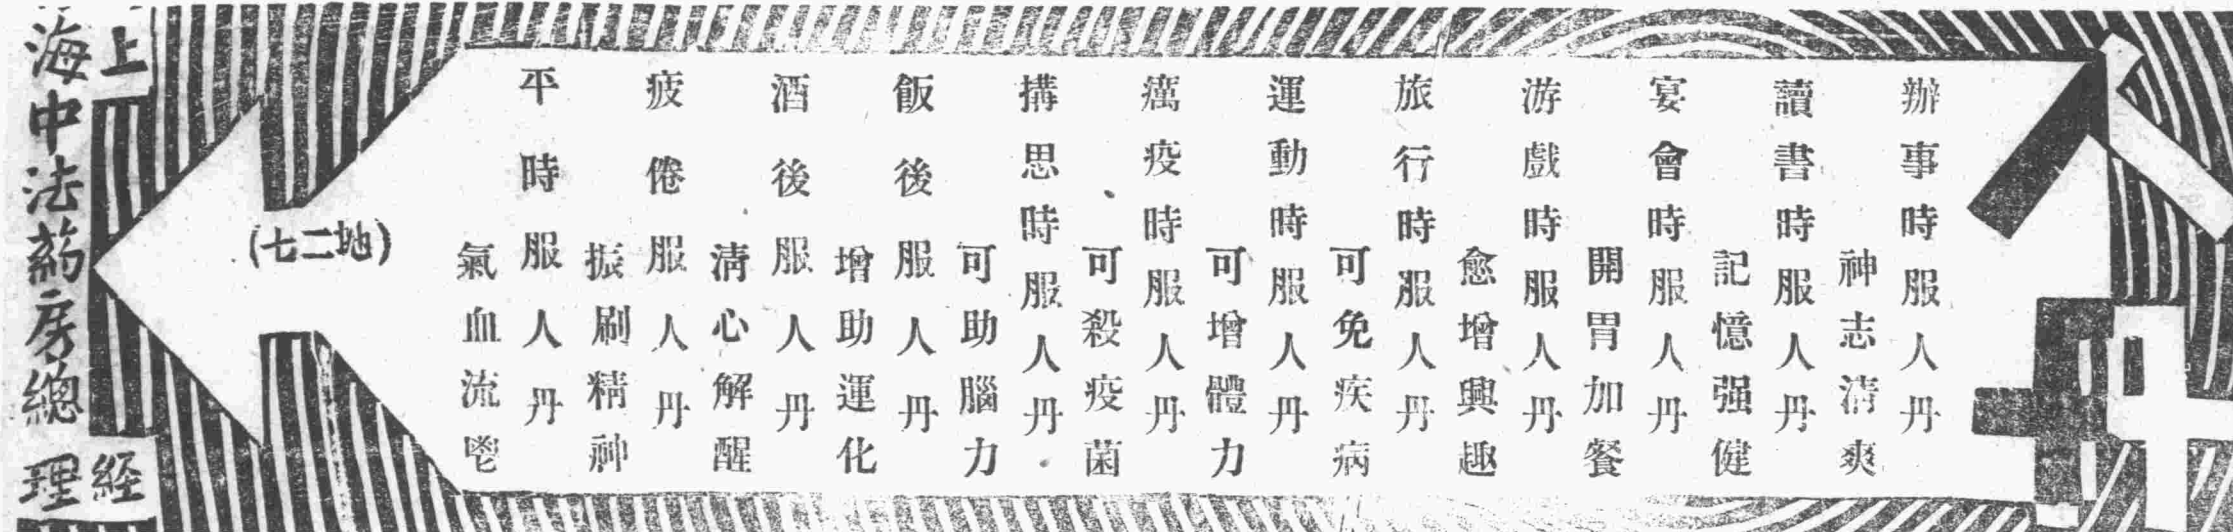 辦事時服人丹
神志清爽
讀書時服人丹
記憶强健
宴會時服人丹
開胃加餐
游戲時服人丹
愈增興趣
旅行時服人丹
可免疾病
運動時服人丹
可增體力
癘疫時服人丹
可殺疫菌
搆思時服人丹
可助腦力
飯後服人丹
增助運化
酒後服人丹
清心解醒
疲倦服人丹
振刷精神
平時服人丹
氣血流鬯
(地二七)
上海中法葯房總經理